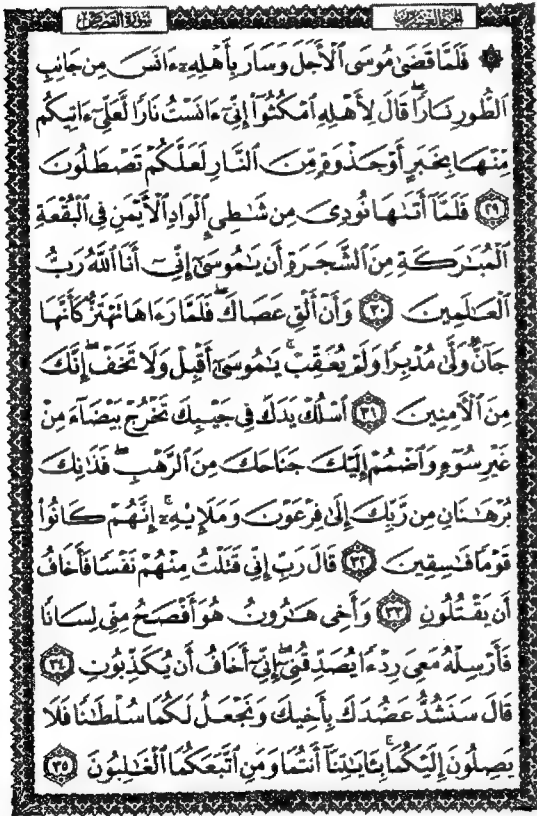 الجزء العشرون
سورة القصص
۞ فَلَمَّا قَضَىٰ مُوسَى ٱلْأَجَلَ وَسَارَ بِأَهْلِهِۦٓ ءَانَسَ مِن جَانِبِ
ٱلطُّورِ نَارًاۖ قَالَ لِأَهْلِهِ ٱمْكُثُوٓا۟ إِنِّىٓ ءَانَسْتُ نَارًا لَّعَلِّىٓ ءَاتِيكُم
مِّنْهَا بِخَبَرٍ أَوْ جَذْوَةٍ مِّنَ ٱلنَّارِ لَعَلَّكُمْ تَصْطَلُونَ
٢٩ فَلَمَّآ أَتَىٰهَا نُودِىَ مِن شَٰطِئِ ٱلْوَادِ ٱلْأَيْمَنِ فِى ٱلْبُقْعَةِ
ٱلْمُبَٰرَكَةِ مِنَ ٱلشَّجَرَةِ أَن يَٰمُوسَىٰٓ إِنِّىٓ أَنَا ٱللَّهُ رَبُّ
ٱلْعَٰلَمِينَ ٣٠ وَأَنْ أَلْقِ عَصَاكَۖ فَلَمَّا رَءَاهَا تَهْتَزُّ كَأَنَّهَا
جَآنٌّ وَلَّىٰ مُدْبِرًا وَلَمْ يُعَقِّبْۚ يَٰمُوسَىٰٓ أَقْبِلْ وَلَا تَخَفْۖ إِنَّكَ
مِنَ ٱلْءَامِنِينَ ٣١ ٱسْلُكْ يَدَكَ فِى جَيْبِكَ تَخْرُجْ بَيْضَآءَ مِنْ
غَيْرِ سُوٓءٍ وَٱضْمُمْ إِلَيْكَ جَنَاحَكَ مِنَ ٱلرَّهْبِۖ فَذَٰنِكَ
بُرْهَٰنَانِ مِن رَّبِّكَ إِلَىٰ فِرْعَوْنَ وَمَلَإِي۟هِۦٓۚ إِنَّهُمْ كَانُوا۟
قَوْمًا فَٰسِقِينَ ٣٢ قَالَ رَبِّ إِنِّى قَتَلْتُ مِنْهُمْ نَفْسًا فَأَخَافُ
أَن يَقْتُلُونِ ٣٣ وَأَخِى هَٰرُونُ هُوَ أَفْصَحُ مِنِّى لِسَانًا
فَأَرْسِلْهُ مَعِىَ رِدْءًا يُصَدِّقُنِىٓۖ إِنِّىٓ أَخَافُ أَن يُكَذِّبُونِ ٣٤
قَالَ سَنَشُدُّ عَضُدَكَ بِأَخِيكَ وَنَجْعَلُ لَكُمَا سُلْطَٰنًا فَلَا
يَصِلُونَ إِلَيْكُمَاۚ بِـَٔايَٰتِنَآ أَنتُمَا وَمَنِ ٱتَّبَعَكُمَا ٱلْغَٰلِبُونَ ٣٥